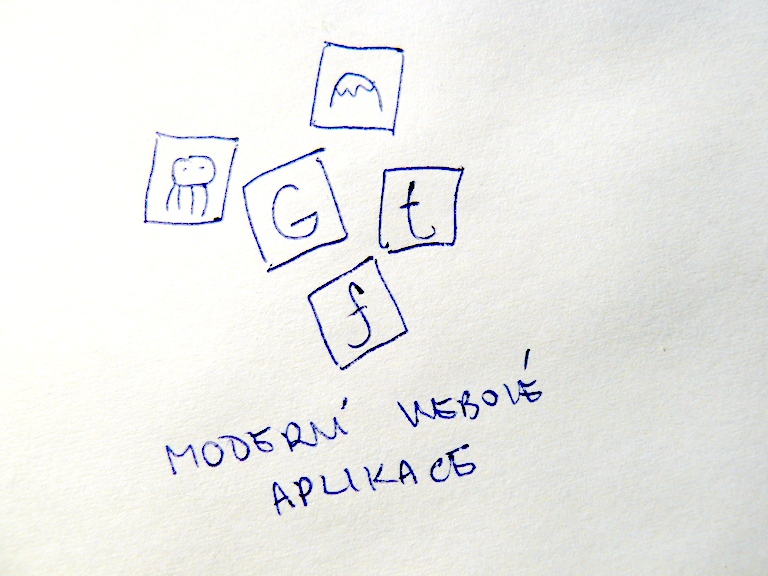 G
t
f
MODERNÍ WEBOVÉ
APLIKACE